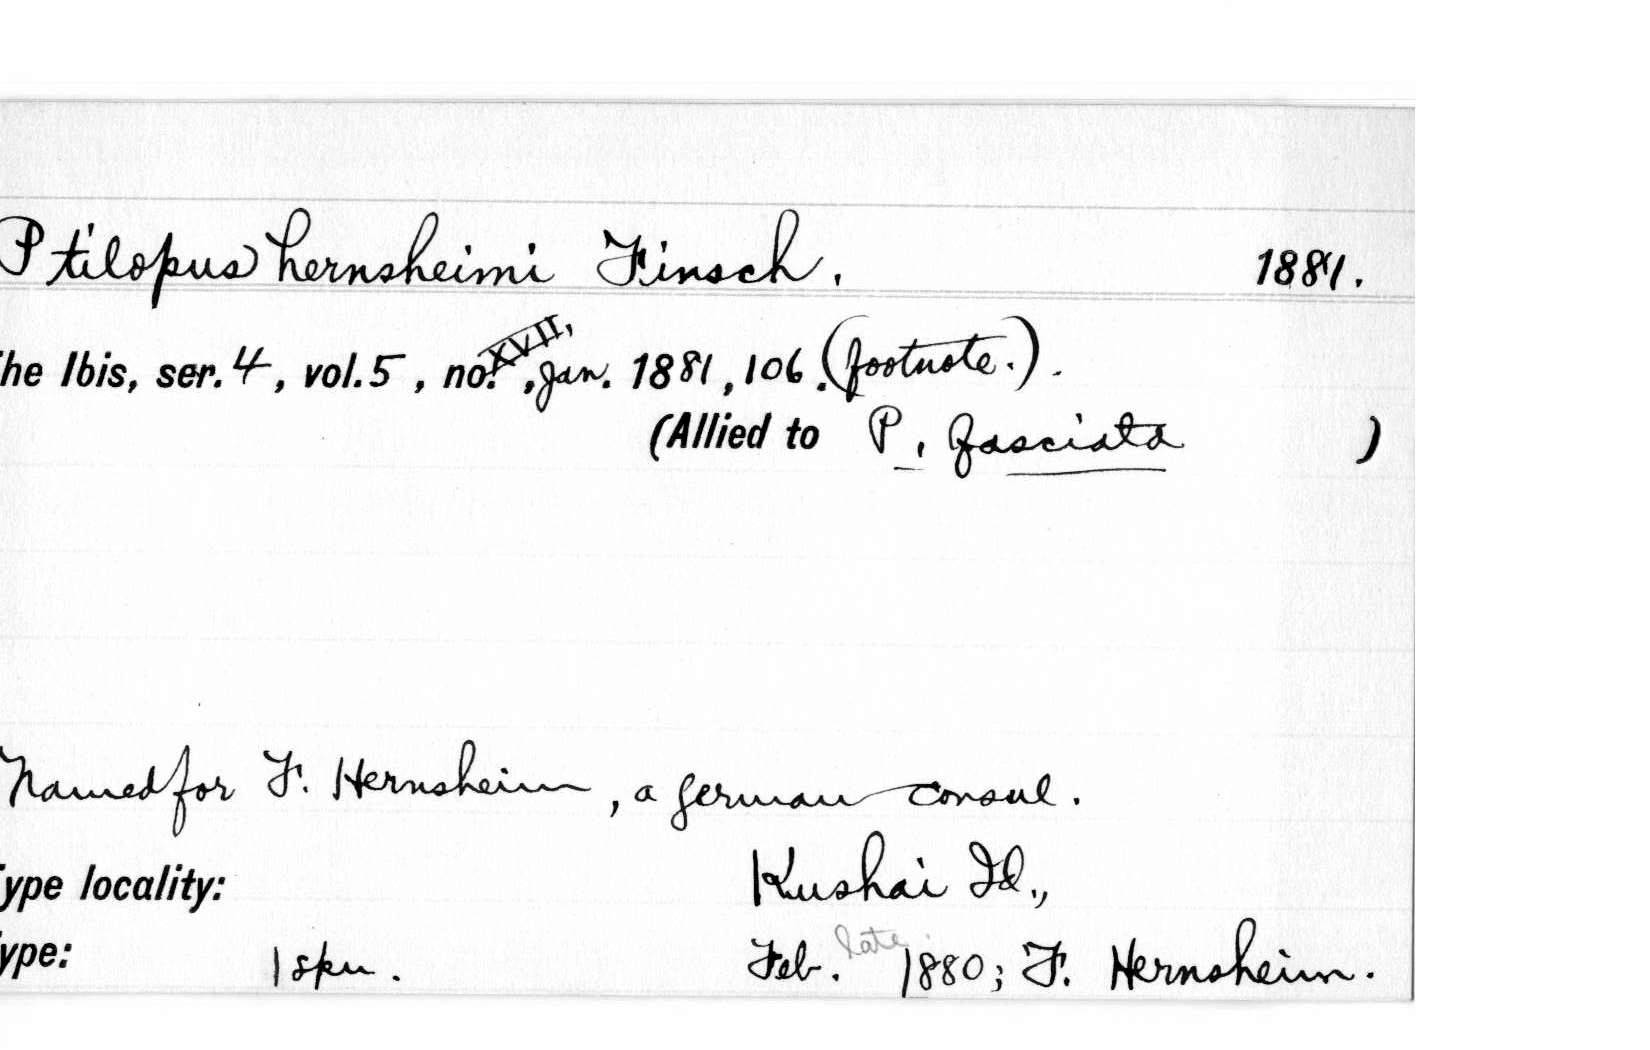 Ptilopus hernsheimi Finsch. 1881.
he Ibis, ser. 4, vol. 5, no. XVII, Jan. 1881, 106. (footnote.).
(Allied to P. fasciata )
Named for F. Hernsheim, a german consul.
Type locality: Kushai Id.,
ype: 1 spn. Feb. late 1880; F. Hernsheim.